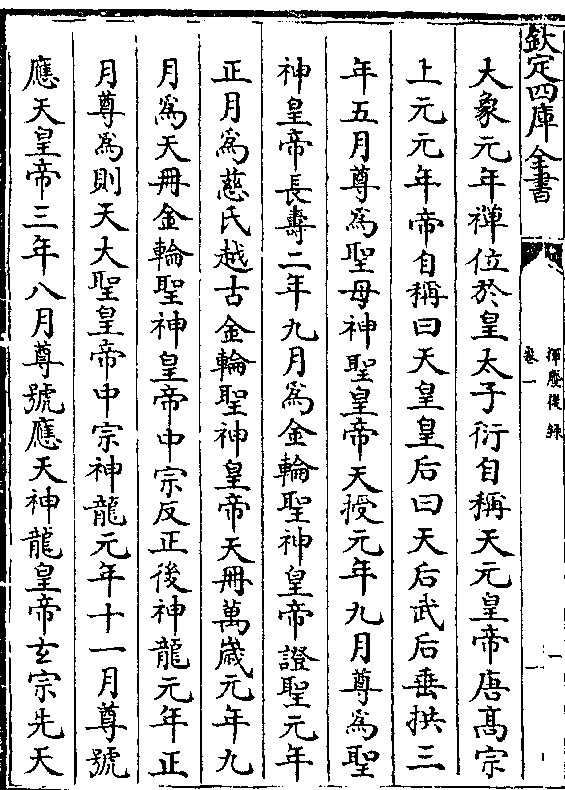 欽定四庫全書
揮麈後録
卷一
一
大象元年禪位於皇太子衍自稱天元皇帝唐髙宗
上元元年帝自稱曰天皇皇后曰天后武后垂拱三
年五月尊為聖母神聖皇帝天授元年九月尊為聖
神皇帝長壽二年九月為金輪聖神皇帝證聖元年
正月為慈氏越古金輪聖神皇帝天冊萬嵗元年九
月為天冊金輪聖神皇帝中宗反正後神龍元年正
月尊為則天大聖皇帝中宗神龍元年十一月尊號
應天皇帝三年八月尊號應天神龍皇帝玄宗先天